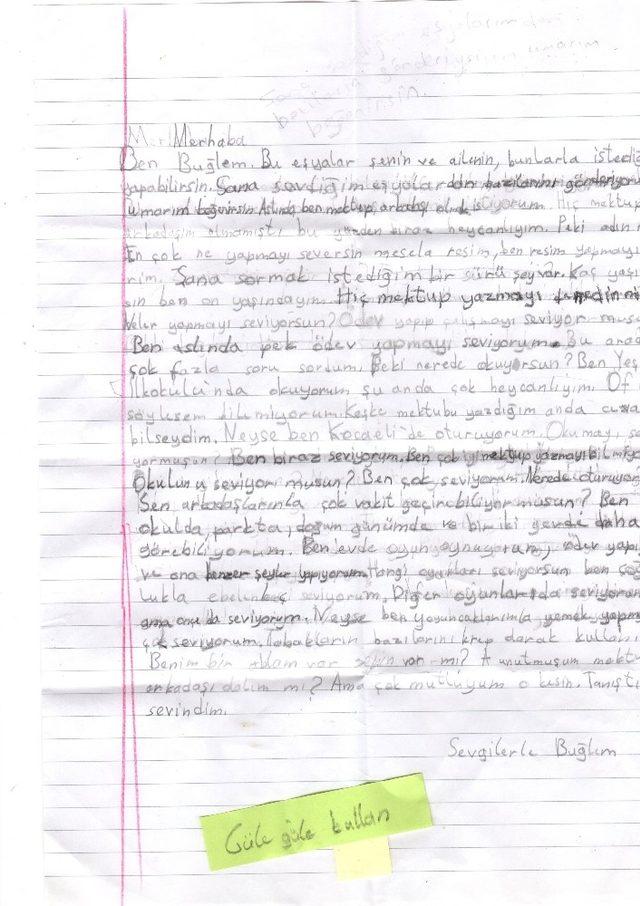 Sana
eşyalarımdan
bazılarını gönderiyorum umarım
beğenirsin.
Merhaba
Ben Buğlem. Bu eşyalar senin ve ailenin, bunlarla istediğ
yapabilirsin. Sana sevdiğim eşyalardan bazılarını gönderiyoru
umarım beğenirsin. Aslında ben mektup arkadaşı olmak istiyorum. Hiç mektup
arkadaşım olmamıştı bu yüzden biraz heycanlıyım. Peki adın n
En çok ne yapmayı seversin mesela resim, ben resim yapmayı
rim. Sana sormak istediğim bir sürü şey var. Kaç yaşı
sın ben on yaşındayım. Hiç mektup yazmayı
Neler yapmayı seviyorsun? Ödev yapıp çalışmayı seviyor musu
Ben aslında pek ödev yapmayı seviyorum. Bu arad
çok fazla soru sordum. Peki nerede okuyorsun? Ben Yeş
İlkokulu'nda okuyorum şu anda çok heycanlıyım. Of
söylesem bilmiyorum. Keşke mektubu yazdığım anda
bilseydim. Neyse ben Kocaeli'de oturuyorum. Okumayı se
yormusun? Ben biraz seviyorum. Ben çok iyi mektup yazmayı bilmiyo
Okulunu seviyor musun? Ben çok seviyorum. Nerede oturuyors
Sen arkadaşlarınla çok vakit geçirebiliyor musun? Ben
okulda, parkta, doğum günümde ve bir iki yerde daha
görebiliyorum. Ben evde oyun oynuyorum, ödev yapı
ve ona benzer şeyler yapıyorum. Hangi oyunları seviyorsun ben çoğ
lukla ebelenbeç seviyorum. Diğer oyunlarıda seviyorum
ama onu da seviyorum. Neyse ben oyuncaklarımla yemek yapma
çok seviyorum. Tabakların bazılarını kırıp olarak kullanı
Benim bir ablam var senin var mı? A unutmuşum mektu
arkadaşı olalım mı? Ama çok mutluyum o kısın. Tanıştı
sevindim.
Sevgilerle Buğlem
Güle güle kullan